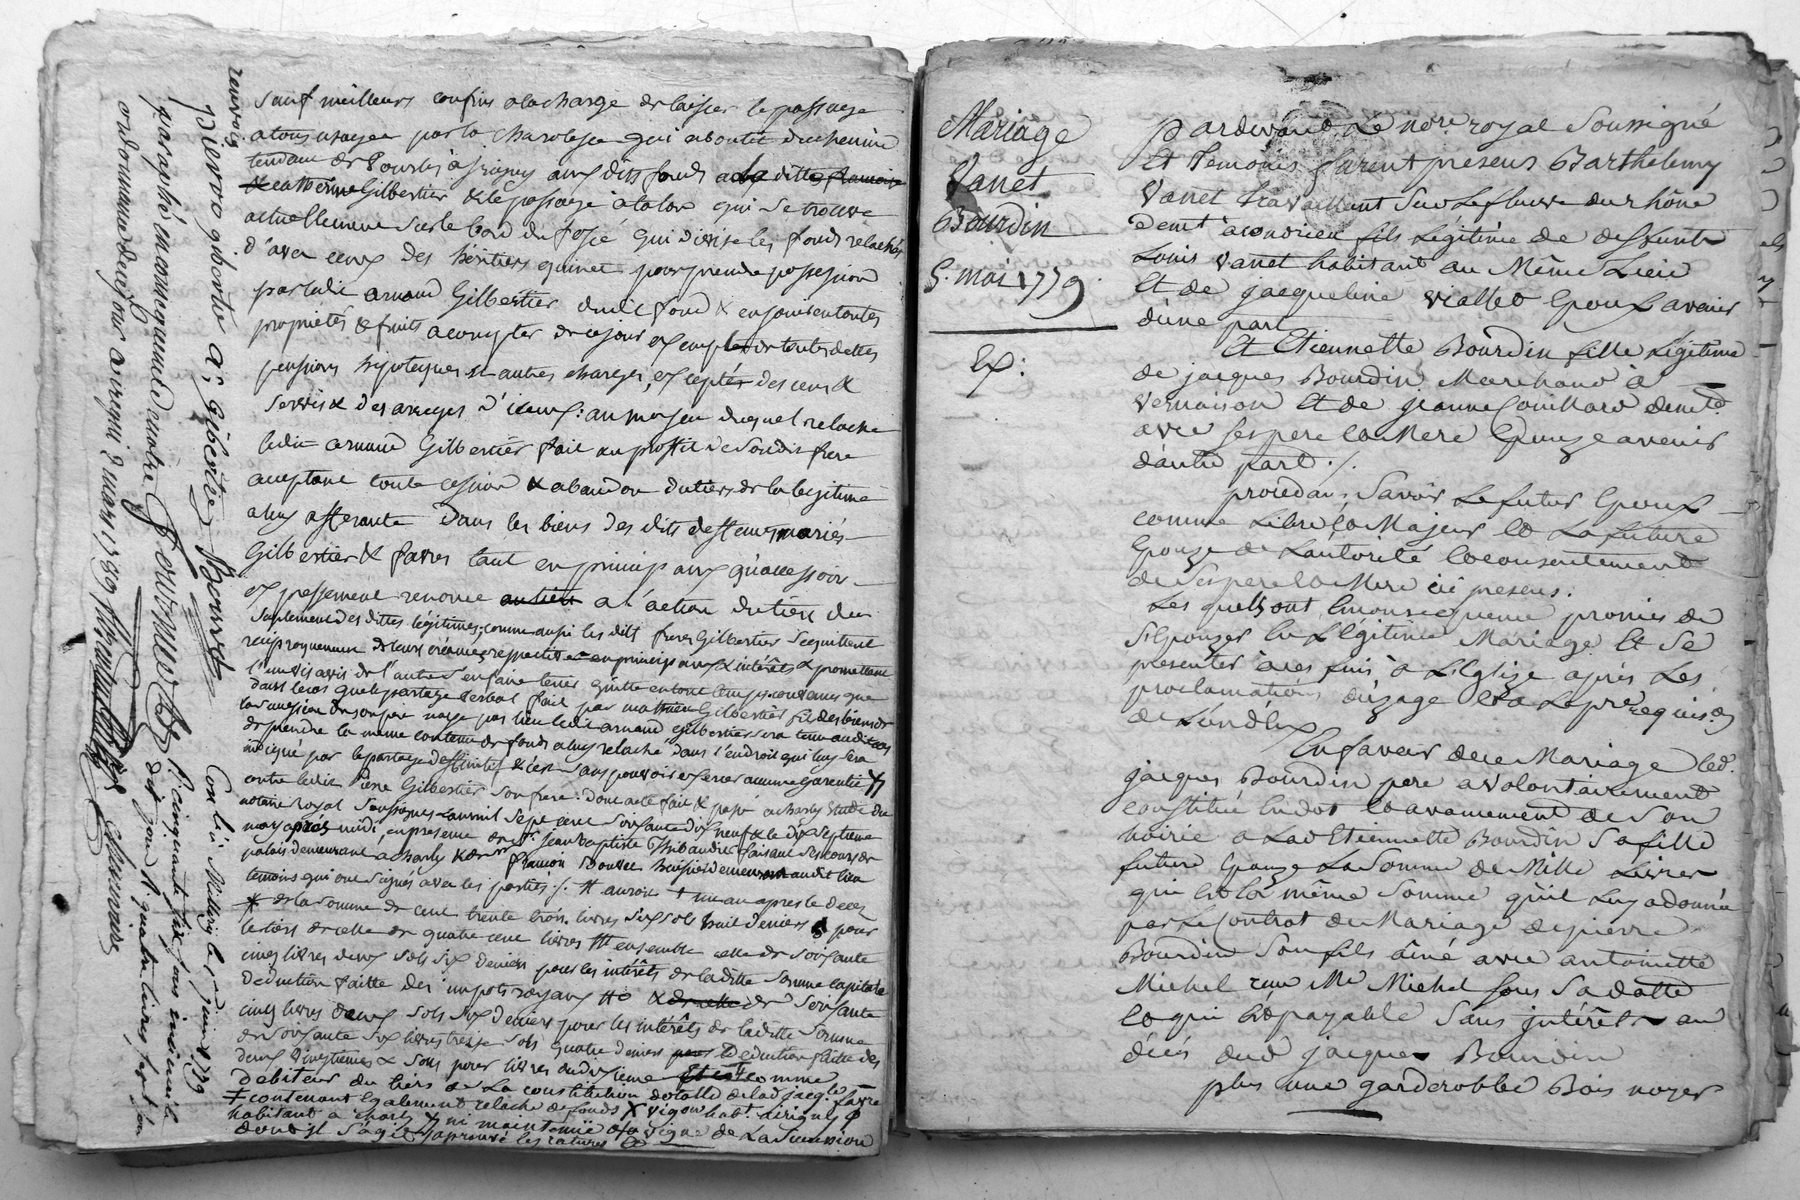 sauf meilleurs confins a la charge de laisser le passage
a tous usages par la charolesse qui aboutit du chemin
tendant de à Irigny aux dits fonds a la ditte francoise
& catherine Gilbertier & le passage à talon qui se trouve
actuellement sur le bord du fossé qui divise les fonds relachés
d'avec ceux des héritiers guinet pour prendre possession
par ledit arnaud Gilbertier dudit fond & en jouir en toutes
proprietés & fruits a compter de ce jour exempts de toutes dettes
pensions hipoteques & autres charges, exceptés des cens &
servis & des arrages d'iceux: au moyen duquel relache
ledit arnaud Gilbertier fait au proffit de son dit frere
acceptant toute cession & abandon du tiers de la legitime
a luy afferante dans les biens des dits deffunts mariés
Gilbertier & favre tant en principaux qu'accessoires
expressement renonce au tiers a l'action du tiers du
suplement des dittes légitimes, comme aussi les dits freres Gilbertier se quittent
reciproquement de leurs créances respectives en principaux & intérêts & promettent
l'un vis avis de l'autre s'en faire tenir quitte en tout temps convenu que
dans le cas que le partage verbal fait par mathieu Gilbertier fils des biens de
la succession de son pere n'aye pas lieu ledit arnaud gilbertier sera tenu audit cas
de prendre la meme contenue de fonds a luy relaché dans l'endroit qui luy sera
designé par le partage deffinitif & c'est sans pouvoir exercer aucune garentie
contre ledit Pierre Gilbertier son frere: dont acte fait & passé a charly etude du
notaire royal soussigné l'an mil sept cent soixante dix neuf & le dix septieme
may après midi, en presence de sr. jean baptiste Thibaudier faisant ses cours de
palais demeurant à charly & de sr françois Doussel huissier demeurant audit lieu
temoins qui ont signés avec les parties ./. # auroit † un an apres le deces
* de la somme de cent trente trois livres six sols huit deniers pour
le tiers de celle de quatre cent livres # ensemble celle de soixante
cinq livres deux sols six deniers pour les intérêts de la ditte somme capitale
deduction faitte des impots royaux & de celle de soixante
cinq livres deux sols six deniers pour les intérêts de la ditte somme
de soixante six livres treize sols quatre deniers pour deduction faitte des
deux vingtiemes & sols pour livres du dixieme Et est comme
debiteur du tiers de La constitution dotalle de lad jacq.te favre
‡ contenant egalement relache de fonds X vigon habt. Lirigny φ
habitant a charly & ni maintenüe ofo vigne de La Succession
dont il s'agit # approuvé les ratures
renvoy
pierre giberte a: gibertie Bourst
paraphé en consequence de notre
ordonnance de ce jour 2 mars 1789
Con.lé à Millery le 1er juin 1779
R. cinquante six sous insinué le
dit jour & quatre livres, sept sou
Mariage
Vanet
Bourdin
5. mai 1779.
Ex:
Pardevant Le nore. royal Soussigné
Et Temoins furent presens Barthelemy
Vanet travaillant Sur Le fleuve du rhône
demt. à condrieu fils Légitime de deffunt
Louis Vanet habitant au Même Lieu
Et de jacqueline viallet Epoux avenir
d'une part
Et Etiennette Bourdin fille Légitime
de jacques Bourdin Marchand à
Vernaison Et de jeanne Couillard demt.
avec ses pere Et Mere Epouze avenir
d'autre part ./.
procedant; Savoir Le futur Epoux
comme Libre Et Majeur Et La future
Epouze de Lautorité Et consentement
de Ses pere Et Mere ici presens.
Les quels ont En consequence promis de
S'Epouzer En Légitime Mariage Et Se
presenter à ces fins à L'Eglize après Les
proclamations d'uzage Et a La pre. requis.on
de L'un d'Eux
En faveur de ce Mariage led.
jacques Bourdin pere a volontairement
constitué En dot Et avancement de Son
hoirie a Lad Etiennette Bourdin Sa fille
future Epouze La Somme de Mille Livres
qui Est la même Somme qu'il Luy a donnée
par Le Contrat de Mariage de pierre
Bourdin Son fils ainé avec antoinette
Michel reçu Me Michel Sous Sa datte
Et qui Est payable Sans intérêts au
décés dud jacques Bourdin
plus une garderobbe Bois noyer